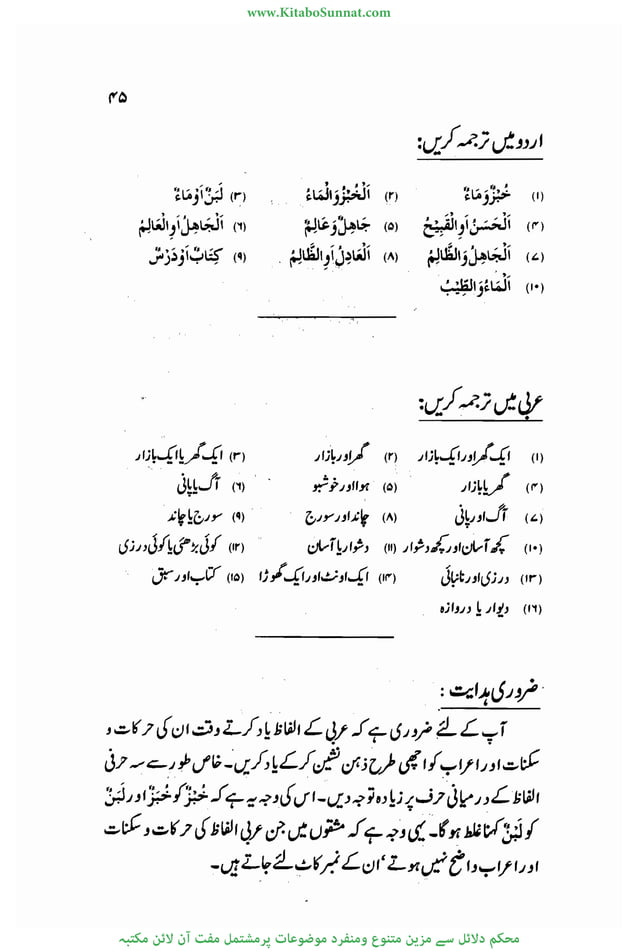 www.KitaboSunnat.com
۴۵
اردو میں ترجمہ کریں:
(۱) خُبْزٌ وَمَاءٌ (۲) اَلْخُبْزُ وَالْمَاءُ (۳) لَبَنٌ اَوْ مَاءٌ
(۴) اَلْحَسَنُ اَوِ الْقَبِیْحُ (۵) جَاهِلٌ وَعَالِمٌ (۶) اَلْجَاهِلُ اَوِ الْعَالِمُ
(۷) اَلْجَاهِلُ وَالظَّالِمُ (۸) اَلْعَادِلُ اَوِ الظَّالِمُ (۹) کِتَابٌ اَوْ دَرْسٌ
(۱۰) اَلْمَاءُ وَالطِّیْبُ
عربی میں ترجمہ کریں:
(۱) ایک گھر اور ایک بازار (۲) گھر اور بازار (۳) ایک گھر یا ایک بازار
(۴) گھر یا بازار (۵) ہوا اور خوشبو (۶) آگ یا پانی
(۷) آگ اور پانی (۸) چاند اور سورج (۹) سورج یا چاند
(۱۰) کچھ آسان اور کچھ دشوار (۱۱) دشوار یا آسان (۱۲) کوئی بڑھئی یا کوئی درزی
(۱۳) درزی اور نانبائی (۱۴) ایک اونٹ اور ایک گھوڑا (۱۵) کتاب اور سبق
(۱۶) دیوار یا دروازہ
ضروری ہدایت :
آپ کے لئے ضروری ہے کہ عربی کے الفاظ یاد کرتے وقت ان کی حرکات و
سکنات اور اعراب کو اچھی طرح ذہن نشین کر کے یاد کریں۔ خاص طور سے سہ حرفی
الفاظ کے درمیانی حرف پر زیادہ توجہ دیں۔ اس کی وجہ یہ ہے کہ خُبْزٌ کو خُبَزٌ اور لَبَنٌ
کو لَبْنٌ کہنا غلط ہو گا۔ یہی وجہ ہے کہ مشقوں میں جن عربی الفاظ کی حرکات و سکنات
اور اعراب واضح نہیں ہوتے ‘ان کے نمبر کاٹ لئے جاتے ہیں۔
محکم دلائل سے مزین متنوع ومنفرد موضوعات پرمشتمل مفت آن لائن مکتبہ